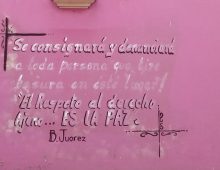 Se consignará y denunciará
a toda persona que tire
basura en este lugar!
"El Respeto al derecho
Ajeno... ES LA PAZ"
B. Juarez